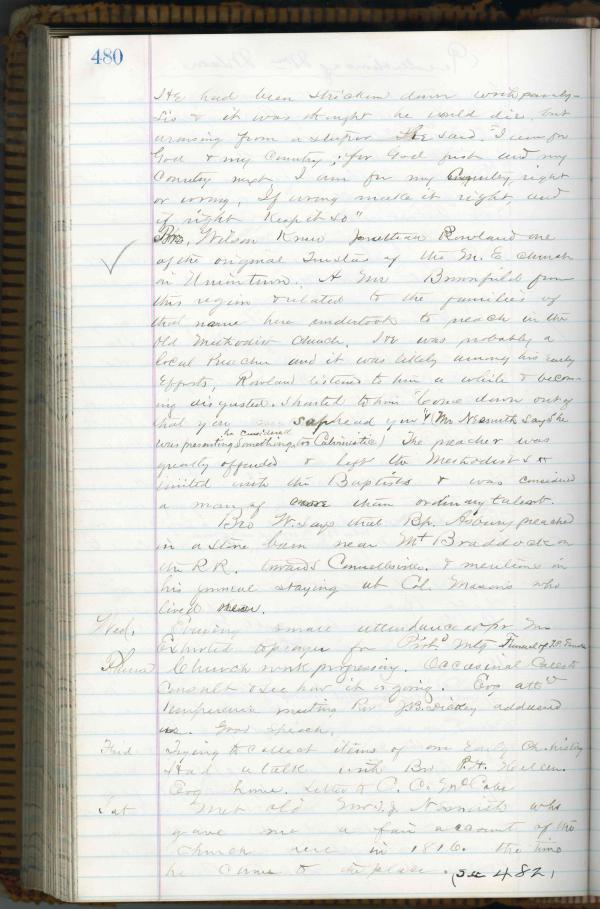 480
HE had been stricken down with paraly-
sis & it was thought he would die, but
arousing from a stupor He said, "I am for
God & my Country, for God first and my
Country next I am for my Country, right
or wrong, If wrong make it right, and
if right Keep it so"
Bro, Wilson Knew Jonathan Rowland one
of the original Trustees of the M. E Church
in Uniontown. A Mr Brownfield from
this region & related to the families of
that name here undertook to preach in the
old Methodist Church, He was probably a
local Preacher and it was likely among his early
Efforts, Rowland listened to him a while & becom-
ing disgusted. Shouted to him "Come down out of
that you saphead you" (Mr Nesmith says he
was presenting something he considered too Calvinistic) The preacher was
greatly offended & left the Methodists &
united with the Baptists & was considered
a man of more than ordinary talent.
Bro W. says that Bp. Asbury preached
in a stone barn near Mt Braddock on
the R R. towards Connellsville. & mentions in
his journal staying at Col. Masons who
lived near.
Wed, Evening small attendance at pr m
Exhorted to prayer for Protd Mtg Funeral of
Thurs Church work progressing. Occasional Calls to
Consult & see how it is going. Evg attd
Temperance meeting Rev J.B. Dickey addressed
us. Good Speech.
Frid Trying to collect items of our Early Ch. history
Had a talk with Bro P.H.
Evg home. Letter to C. C. McCabe
Sat Met old Mr T.J. Nesmith who
gave me a fair account of the
Church here in 1816. the time
he came to the place. (See 482)